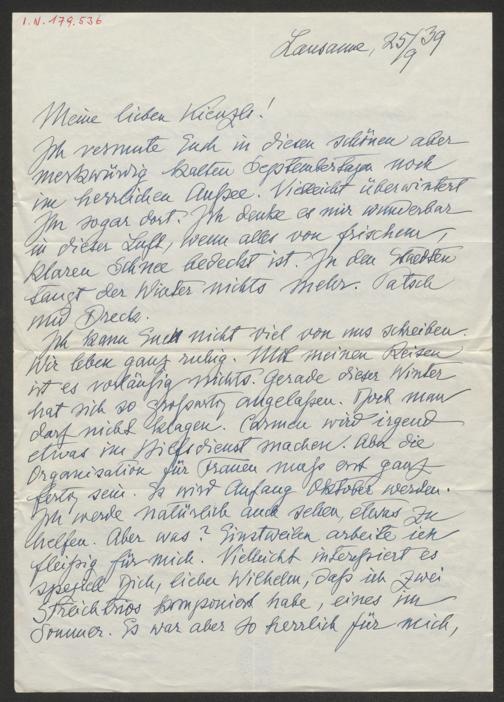 I.N. 179.536
Lausanne, 25/9 39
Meine lieben Kienzls!
Ich vermute Euch in diesen schönen aber
merkwürdig kalten Septembertagen noch
im herrlichen Aussee. Vielleicht überwintert
Ihr sogar dort. Ich denke es mir wunderbar
in dieser Luft, wenn alles von frischem,
klaren Schnee bedeckt ist. In den Städten
taugt der Winter nichts mehr. Patsch
und Dreck.
Ich kann Euch nicht viel von uns schreiben.
Wir leben ganz ruhig. Mit meinen Reisen
ist es vorläufig nichts. Gerade dieser Winter
hat sich so großartig angelaßen. Doch man
darf nicht klagen. Carmen wird irgend
etwas im Hilfsdienst machen. Aber die
Organisation für Frauen muß erst ganz
fertig sein. Es wird Anfang Oktober werden.
Ich werde natürlich auch sehen, etwas zu
helfen. Aber was? Einstweilen arbeite ich
fleißig für mich. Vielleicht interessiert es
speziell Dich, lieber Wilhelm, daß ich zwei
Streichtrios komponiert habe, eines im
Sommer. Es war aber so herrlich für mich,